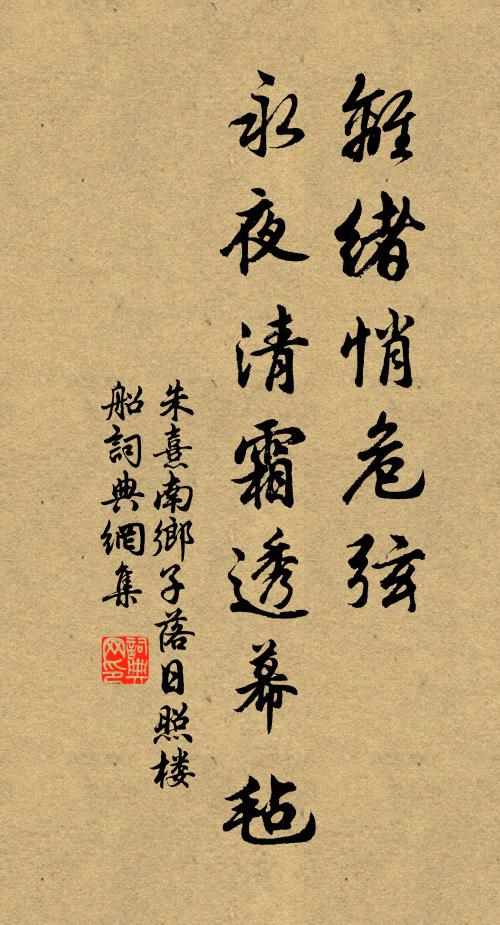 離緒悄危弦
永夜清霜透幕毡
朱熹南鄉子落日照楼
船詞典網集
詞典
网印